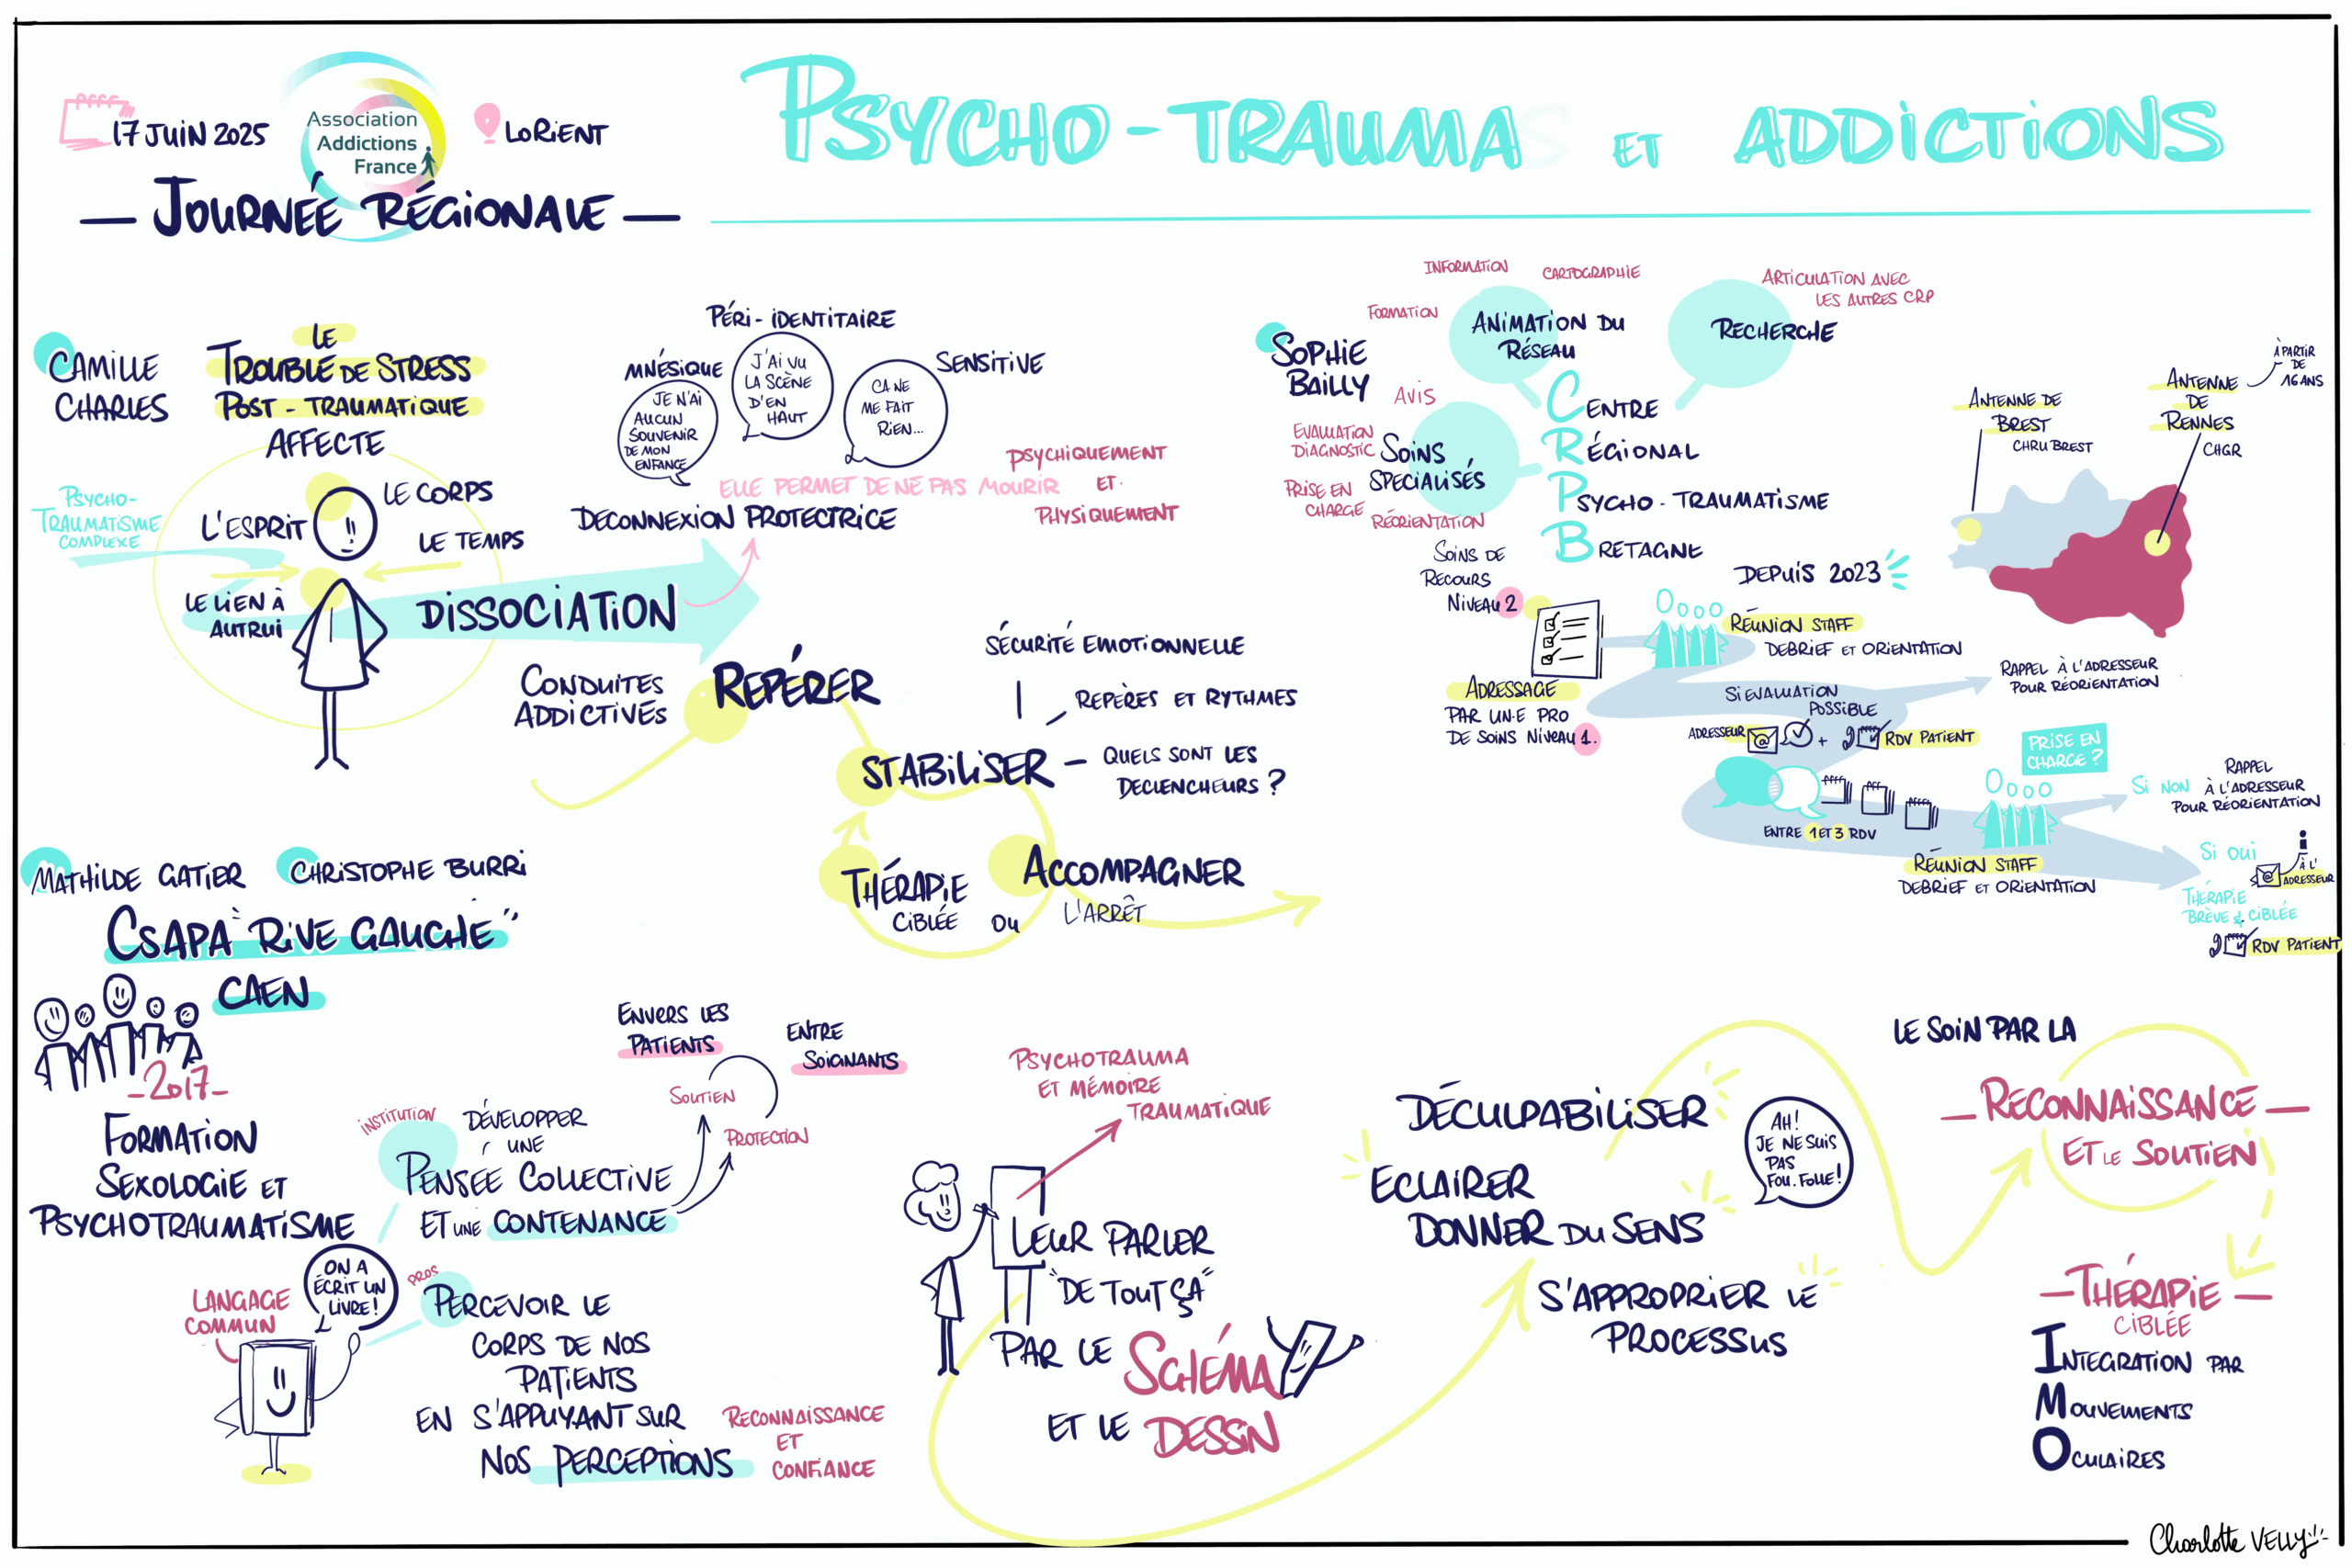 17 JUIN 2025
Association
Addictions
France
LORIENT
— JOURNÉE RÉGIONALE —
PSYCHO-TRAUMAS ET ADDICTIONS
CAMILLE
CHARLES
LE
TROUBLE DE STRESS
POST-TRAUMATIQUE
AFFECTE
PSYCHO-
TRAUMATISME
COMPLEXE
L'ESPRIT
LE CORPS
LE TEMPS
LE LIEN À
AUTRUI
DISSOCIATION
MNÉSIQUE
JE N'AI
AUCUN
SOUVENIR
DE MON
ENFANCE
PÉRI-IDENTITAIRE
J'AI VU
LA SCÈNE
D'EN
HAUT
SENSITIVE
CA NE
ME FAIT
RIEN...
ELLE PERMET DE NE PAS MOURIR
PSYCHIQUEMENT
ET
PHYSIQUEMENT
DECONNEXION PROTECTRICE
CONDUITES
ADDICTIVES
REPÉRER
STABILISER
SÉCURITÉ EMOTIONNELLE
REPÈRES ET RYTHMES
QUELS SONT LES
DECLENCHEURS ?
THÉRAPIE
CIBLÉE
OU
ACCOMPAGNER
L'ARRÊT
SOPHIE
BAILLY
INFORMATION
CARTOGRAPHIE
FORMATION
ANIMATION DU
RÉSEAU
RECHERCHE
ARTICULATION AVEC
LES AUTRES CRP
AVIS
EVALUATION
DIAGNOSTIC
PRISE EN
CHARGE
RÉORIENTATION
SOINS
SPECIALISÉS
CENTRE
RÉGIONAL
PSYCHO-TRAUMATISME
BRETAGNE
DEPUIS 2023
ANTENNE DE
BREST
CHRU BREST
ANTENNE
DE
RENNES
CHGR
À PARTIR
DE
16 ANS
SOINS DE
RECOURS
NIVEAU 2
ADRESSAGE
PAR UN·E PRO
DE SOINS NIVEAU 1.
RÉUNION STAFF
DEBRIEF ET ORIENTATION
RAPPEL À L'ADRESSEUR
POUR RÉORIENTATION
SI EVALUATION
POSSIBLE
ADRESSEUR @ + RDV PATIENT
ENTRE 1 ET 3 RDV
PRISE EN
CHARGE ?
RÉUNION STAFF
DEBRIEF ET ORIENTATION
SI NON
RAPPEL
À L'ADRESSEUR
POUR RÉORIENTATION
SI OUI
i
À L'
@ ADRESSEUR
THÉRAPIE
BRÈVE & CIBLÉE
RDV PATIENT
MATHILDE GATIER
CHRISTOPHE BURRI
CSAPA "RIVE GAUCHE"
CAEN
-2017-
FORMATION
SEXOLOGIE ET
PSYCHOTRAUMATISME
LANGAGE
COMMUN
ON A
ÉCRIT UN
LIVRE !
INSTITUTION
DÉVELOPPER
UNE
PENSÉE COLLECTIVE
ET UNE CONTENANCE
SOUTIEN
PROTECTION
ENVERS LES
PATIENTS
ENTRE
SOIGNANTS
PROS
PERCEVOIR LE
CORPS DE NOS
PATIENTS
EN S'APPUYANT SUR
NOS PERCEPTIONS
RECONNAISSANCE
ET
CONFIANCE
PSYCHOTRAUMA
ET MÉMOIRE
TRAUMATIQUE
LEUR PARLER
"DE TOUT ÇA"
PAR LE SCHÉMA
ET LE DESSIN
DÉCULPABILISER
ECLAIRER
DONNER DU SENS
S'APPROPRIER LE
PROCESSUS
AH !
JE NE SUIS
PAS
FOU.FOLLE !
LE SOIN PAR LA
— RECONNAISSANCE —
ET LE SOUTIEN
— THÉRAPIE —
CIBLÉE
INTEGRATION PAR
MOUVEMENTS
OCULAIRES
Charlotte VELLY